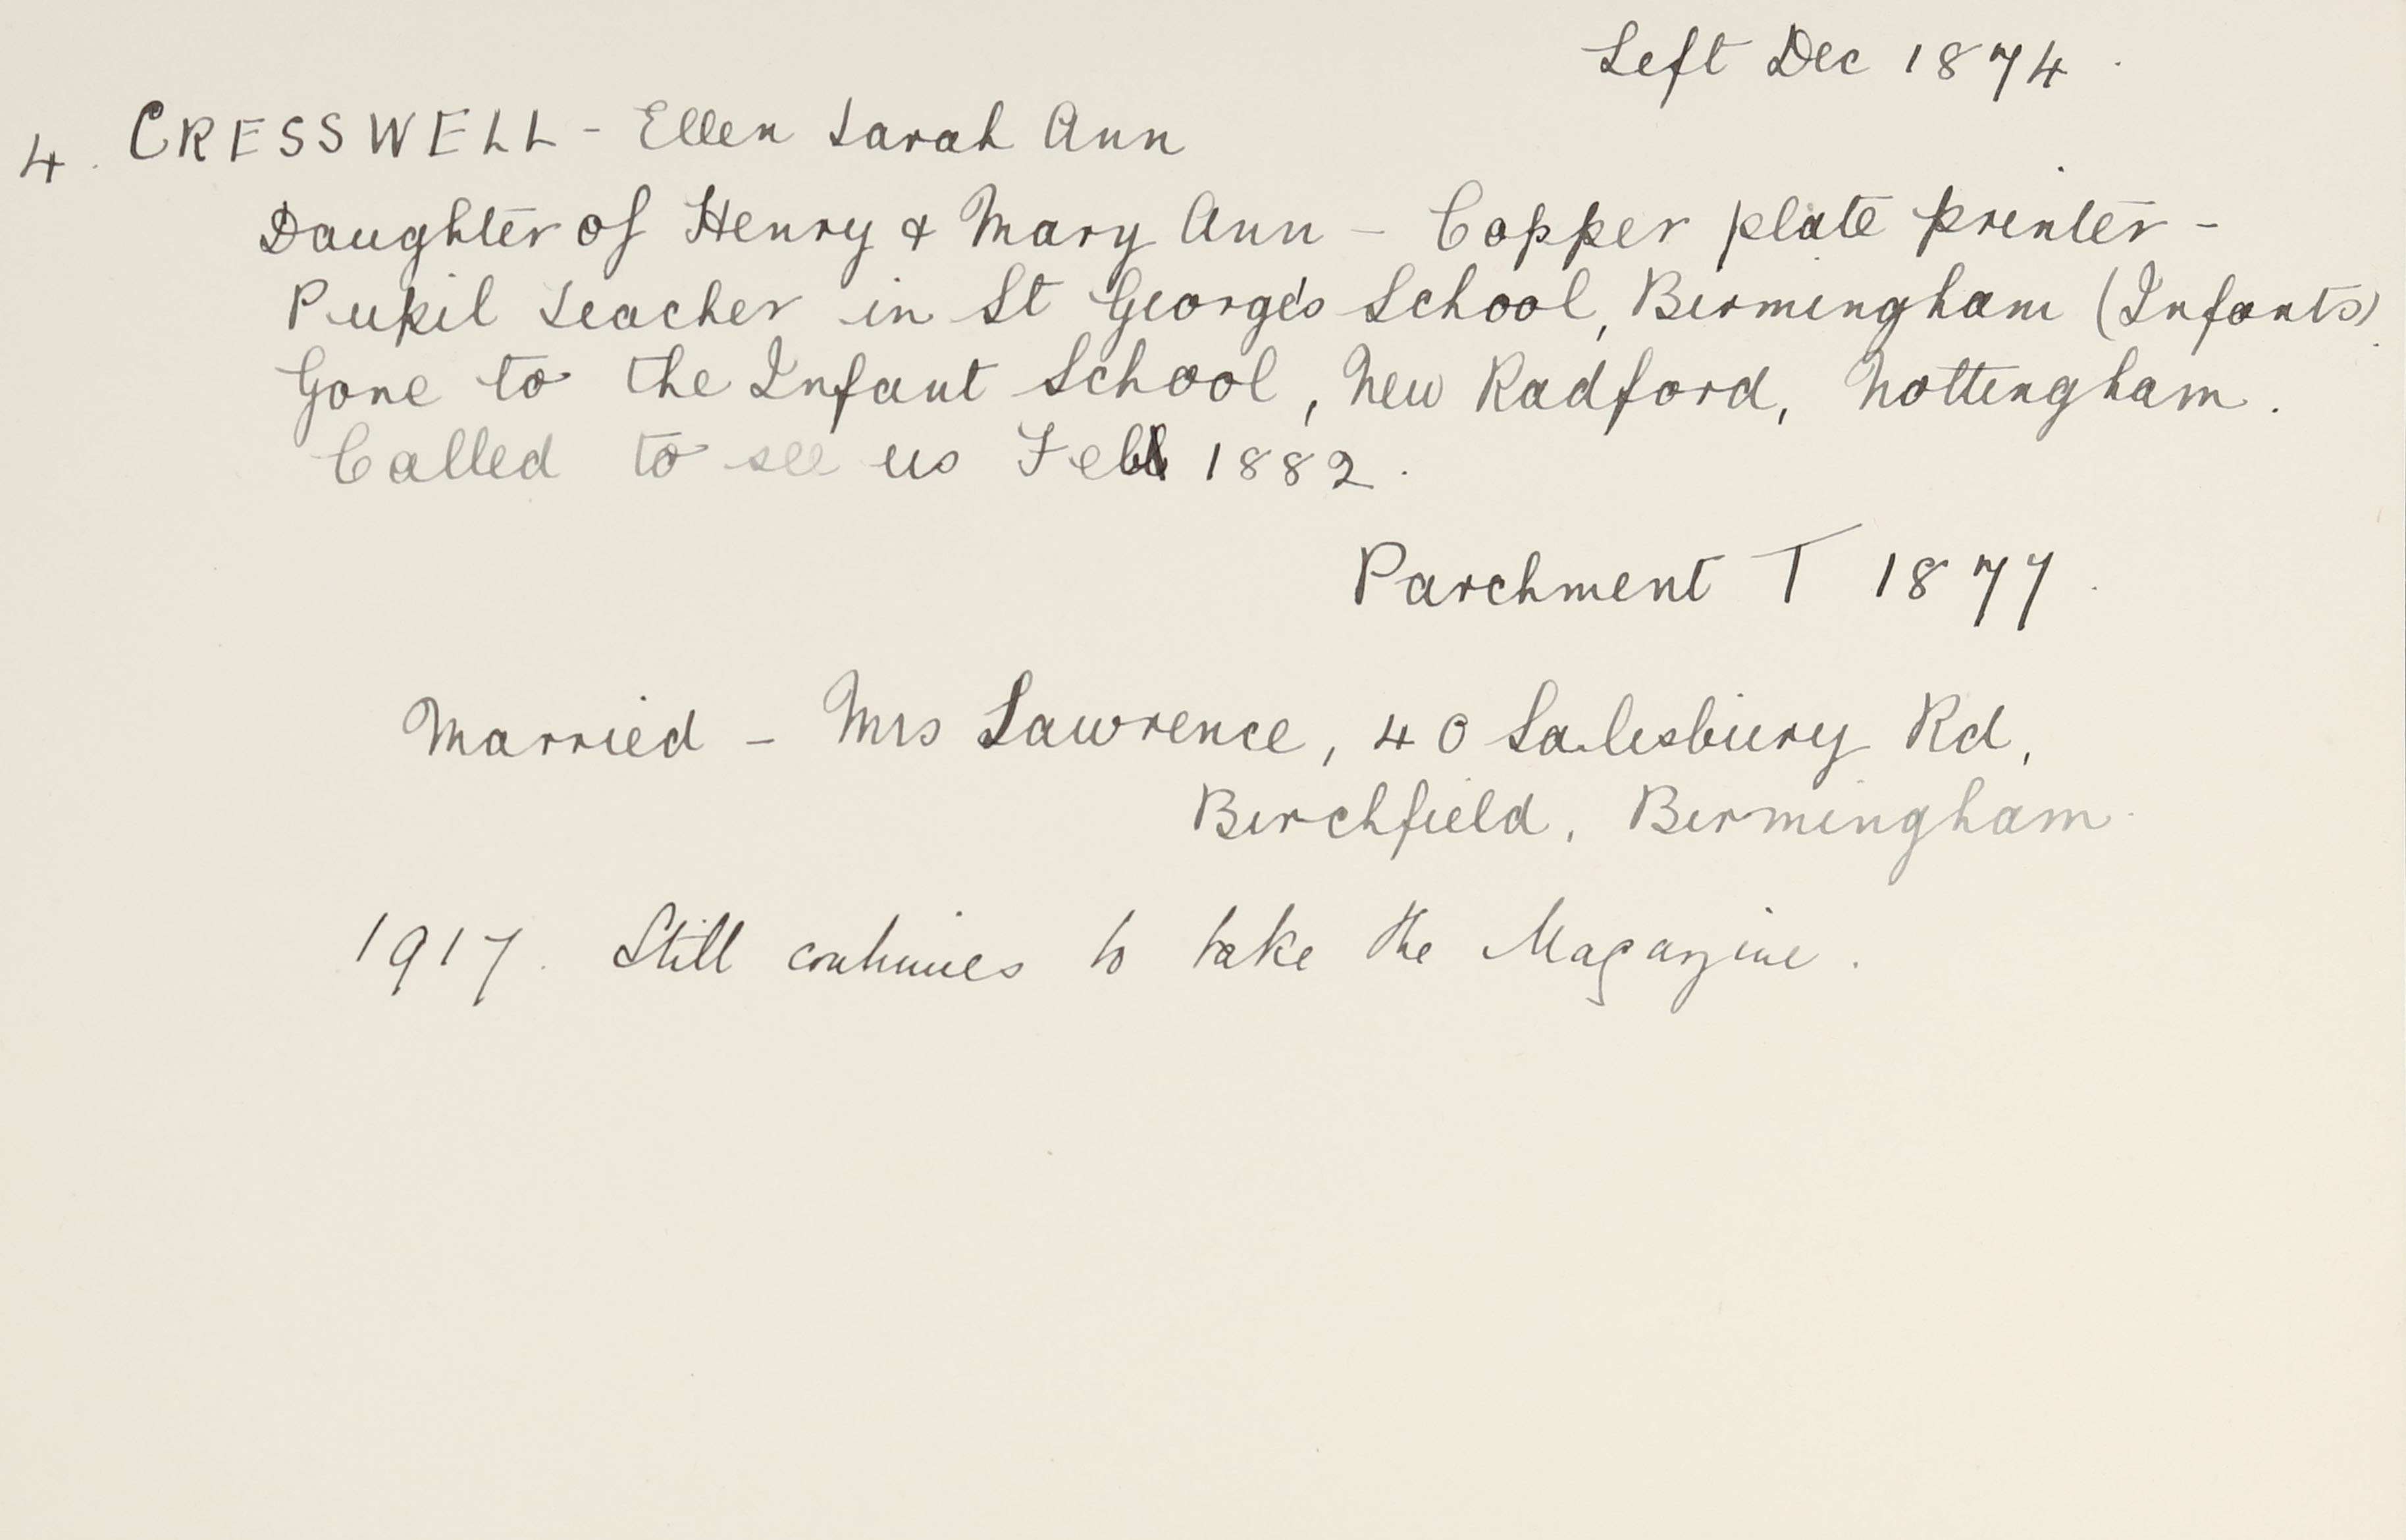 Left Dec 1874.
4. CRESSWELL - Ellen Sarah Ann
Daughter of Henry & Mary Ann - Copper plate printer -
Pupil teacher in St George's School, Birmingham (Infants).
Gone to the Infant School, New Radford, Nottingham.
Called to see us Feb 1882.
Parchment T 1877.
Married - Mrs Lawrence, 40 Salisbury Rd,
Birchfield, Birmingham.
1917. Still continues to take the Magazine.